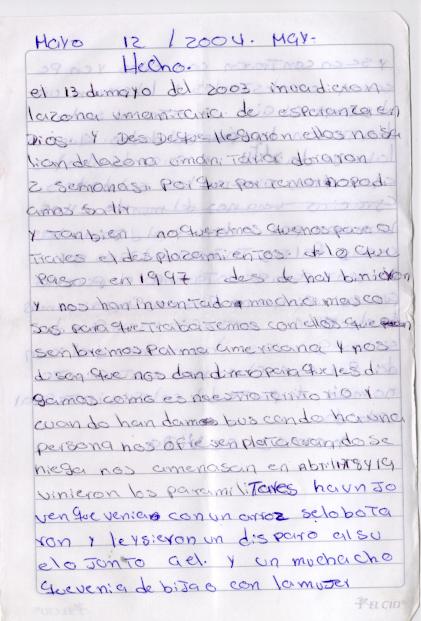 Mayo 12 / 2004. Mar.
Hecho.
el 13 demayo del 2003 invadieron
lazona umanitaria de esperanza en
Dios y Des Desque llegaron ellos nosa
lian delazona umanitaria duraron
2 semanas. Porque por temor nopod
amos salir
y tanbien noqueremos quenospase o
traves el desplazamientos. delo que
paso en 1997 des de hay binieron
y nos han inventado mucha mas co
sas para quetrabajemos con ellos que
senbremos Palma americana y nos
disen que nos dan dinero para que les di
gamos como es nuestro territorio y
cuando handamos buscando haruna
persona nos ofresen plata cuando se
niega nos amenasan en Abril 18 y 19
vinieron los paramilitares ha un jo
ven que venia con un arroz selo bota
ron y leysieron un disparo al su
elo junto a el. y un muchacho
quevenia de bijao con la mujer
EL CID